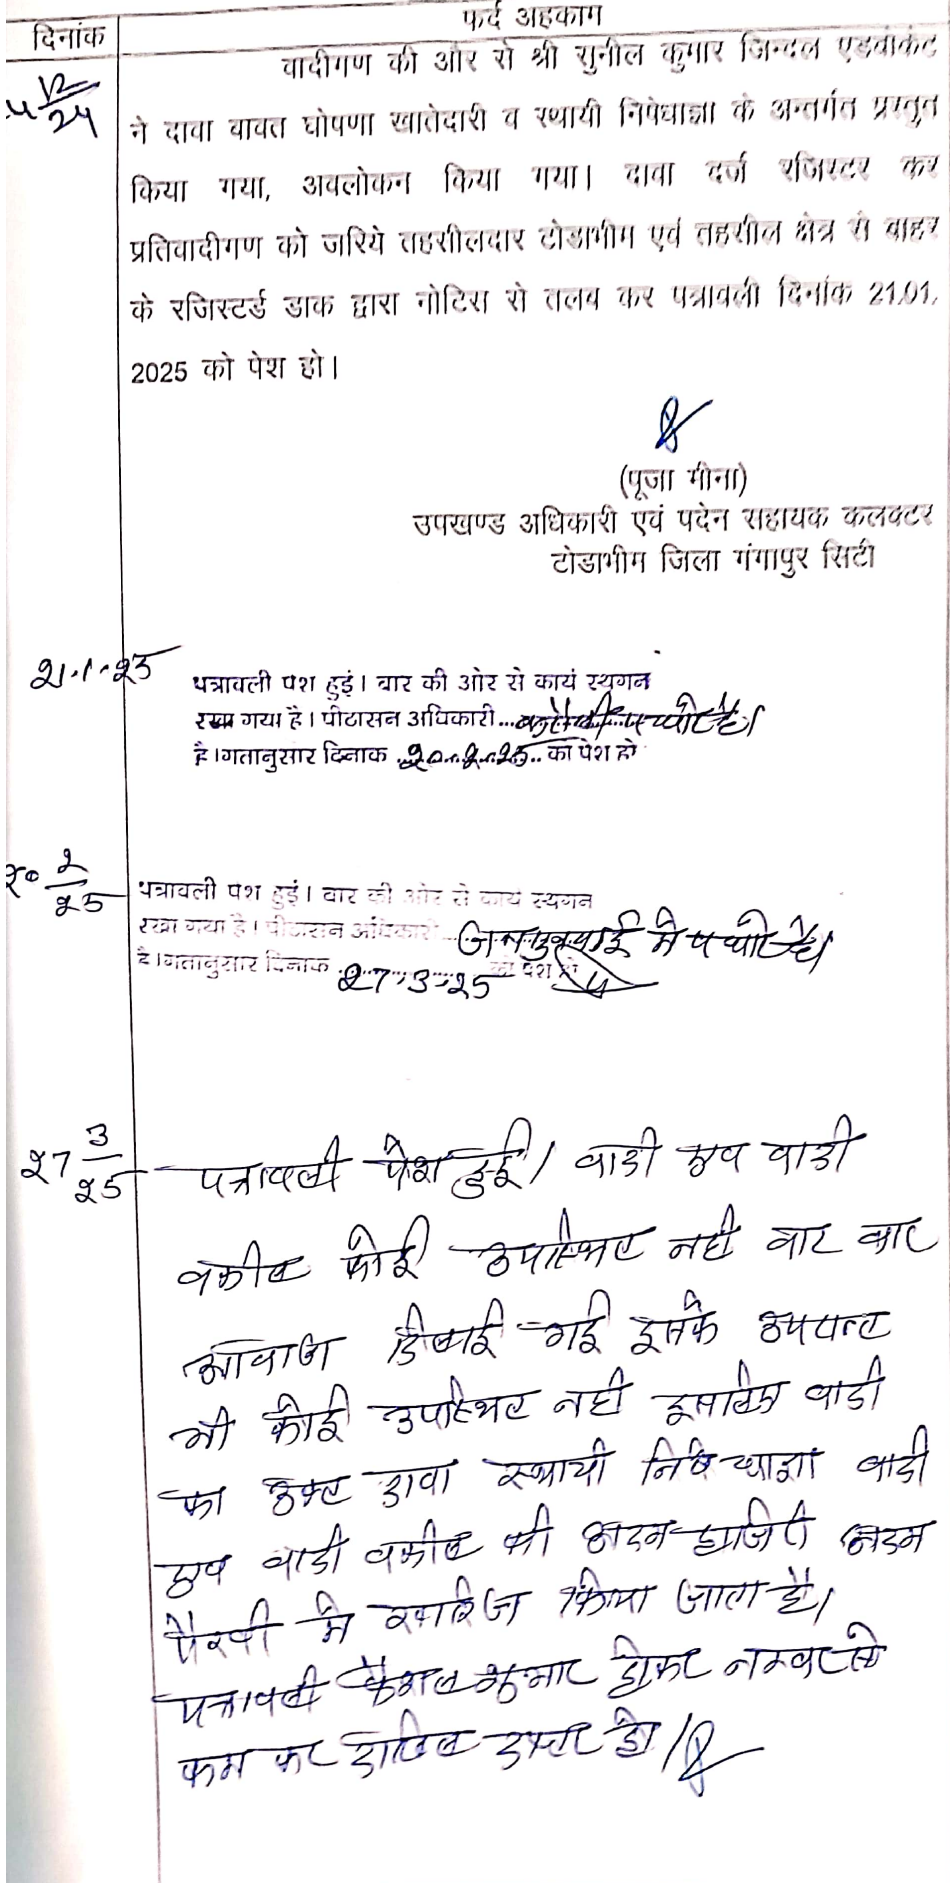 दिनांक
फर्द अहकाम
12/24
वादीगण की और से श्री सुनील कुमार जिन्दल एडवोकेट
ने दावा बावत घोषणा खातेदारी व स्थायी निषेधाज्ञा के अन्तर्गत प्रस्तुत
किया गया, अवलोकन किया गया। दावा दर्ज रजिस्टर कर
प्रतिवादीगण को जरिये तहसीलदार टोडाभीम एवं तहसील क्षेत्र से बाहर
के रजिस्टर्ड डाक द्वारा नोटिस से तलब कर पत्रावली दिनांक 21.01.
2025 को पेश हो।
(पूजा मीना)
उपखण्ड अधिकारी एवं पदेन सहायक कलक्टर
टोडाभीम जिला गंगापुर सिटी
21.1.25
पत्रावली पेश हुई। बार की ओर से कार्य स्थगन
रखा गया है। पीठासन अधिकारी
है। गतानुसार दिनांक 20.2.25 को पेश हो
20 2/25
पत्रावली पेश हुई। बार की ओर से कार्य स्थगन
रखा गया है। पीठासन अधिकारी जनसुनवाई मे
है। गतानुसार दिनांक 27.3.25 को पेश हो
27 3/25
पत्रावली पेश हुई। वादी एव वादी
वकील कोई उपस्थित नही बार बार
आवाज दिलाई गई इसके उपरान्त
भी कोई उपस्थित नही इसलिए वादी
का उक्त दावा स्थायी निषेधाज्ञा वादी
एव वादी वकील की अदम हाजिरी अदम
पैरवी मे खारिज किया जाता है।
पत्रावली फैसल शुमार होकर नम्बर से
कम कर दाखिल दफ्तर हो।